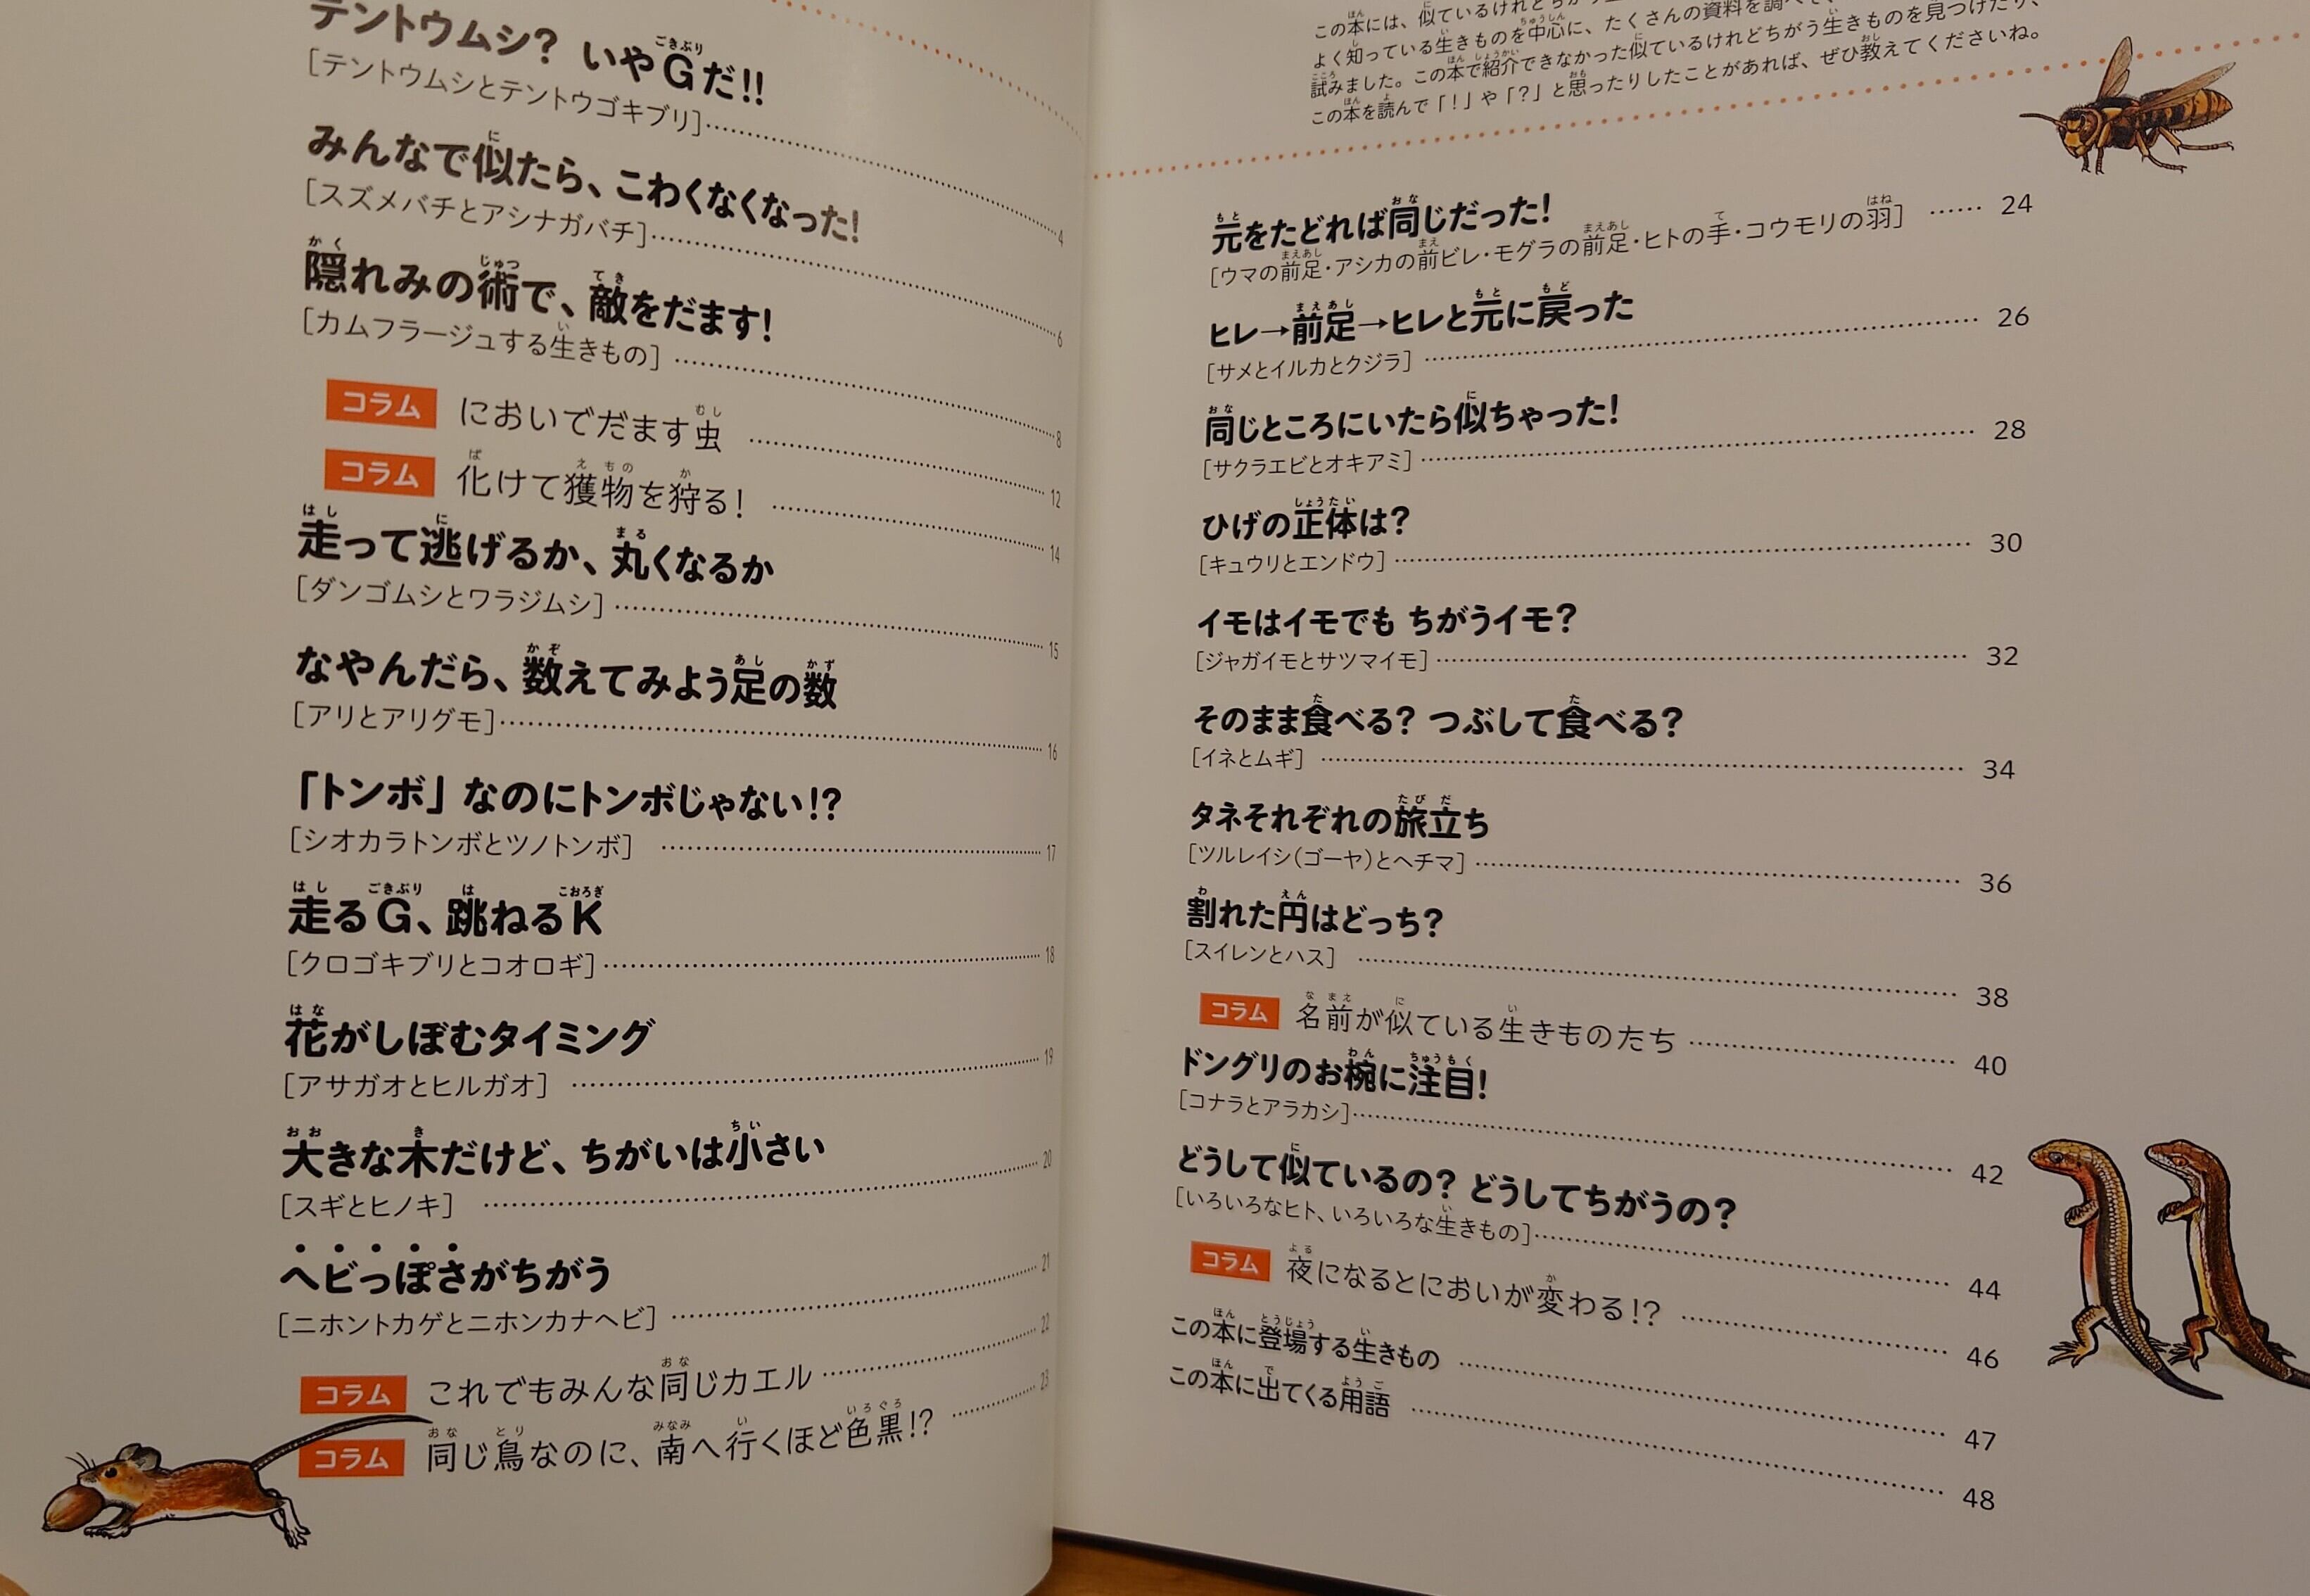 テントウムシ? いやGだ!!
[テントウムシとテントウゴキブリ] 4
みんなで似たら、こわくなくなった!
[スズメバチとアシナガバチ] 6
隠れみの術で、敵をだます!
[カムフラージュする生きもの] 8
コラム においでだます虫 12
コラム 化けて獲物を狩る! 14
走って逃げるか、丸くなるか
[ダンゴムシとワラジムシ] 15
なやんだら、数えてみよう足の数
[アリとアリグモ] 16
「トンボ」なのにトンボじゃない!?
[シオカラトンボとツノトンボ] 17
走るG、跳ねるK
[クロゴキブリとコオロギ] 18
花がしぼむタイミング
[アサガオとヒルガオ] 19
大きな木だけど、ちがいは小さい
[スギとヒノキ] 20
ヘビっぽさがちがう
[ニホントカゲとニホンカナヘビ] 21
コラム これでもみんな同じカエル 22
コラム 同じ鳥なのに、南へ行くほど色黒!? 23
この本には、似ているけれど
よく知っている生きものを中心に、たくさんの資料を調べて
試みました。この本で紹介できなかった似ているけれどちがう生きものを見つけたり、
この本を読んで「!」や「?」と思ったりしたことがあれば、ぜひ教えてくださいね。
元をたどれば同じだった!
[ウマの前足・アシカの前ビレ・モグラの前足・ヒトの手・コウモリの羽] 24
ヒレ→前足→ヒレと元に戻った
[サメとイルカとクジラ] 26
同じところにいたら似ちゃった!
[サクラエビとオキアミ] 28
ひげの正体は?
[キュウリとエンドウ] 30
イモはイモでも ちがうイモ?
[ジャガイモとサツマイモ] 32
そのまま食べる? つぶして食べる?
[イネとムギ] 34
タネそれぞれの旅立ち
[ツルレイシ(ゴーヤ)とヘチマ] 36
割れた円はどっち?
[スイレンとハス] 38
コラム 名前が似ている生きものたち 40
ドングリのお椀に注目!
[コナラとアラカシ] 42
どうして似ているの? どうしてちがうの?
[いろいろなヒト、いろいろな生きもの] 44
コラム 夜になるとにおいが変わる!? 46
この本に登場する生きもの 47
この本に出てくる用語 48